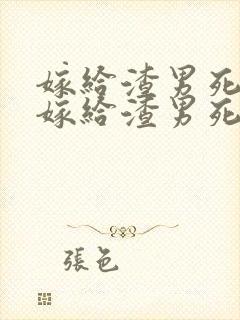 嫁給渣男死
嫁給渣男死
張色